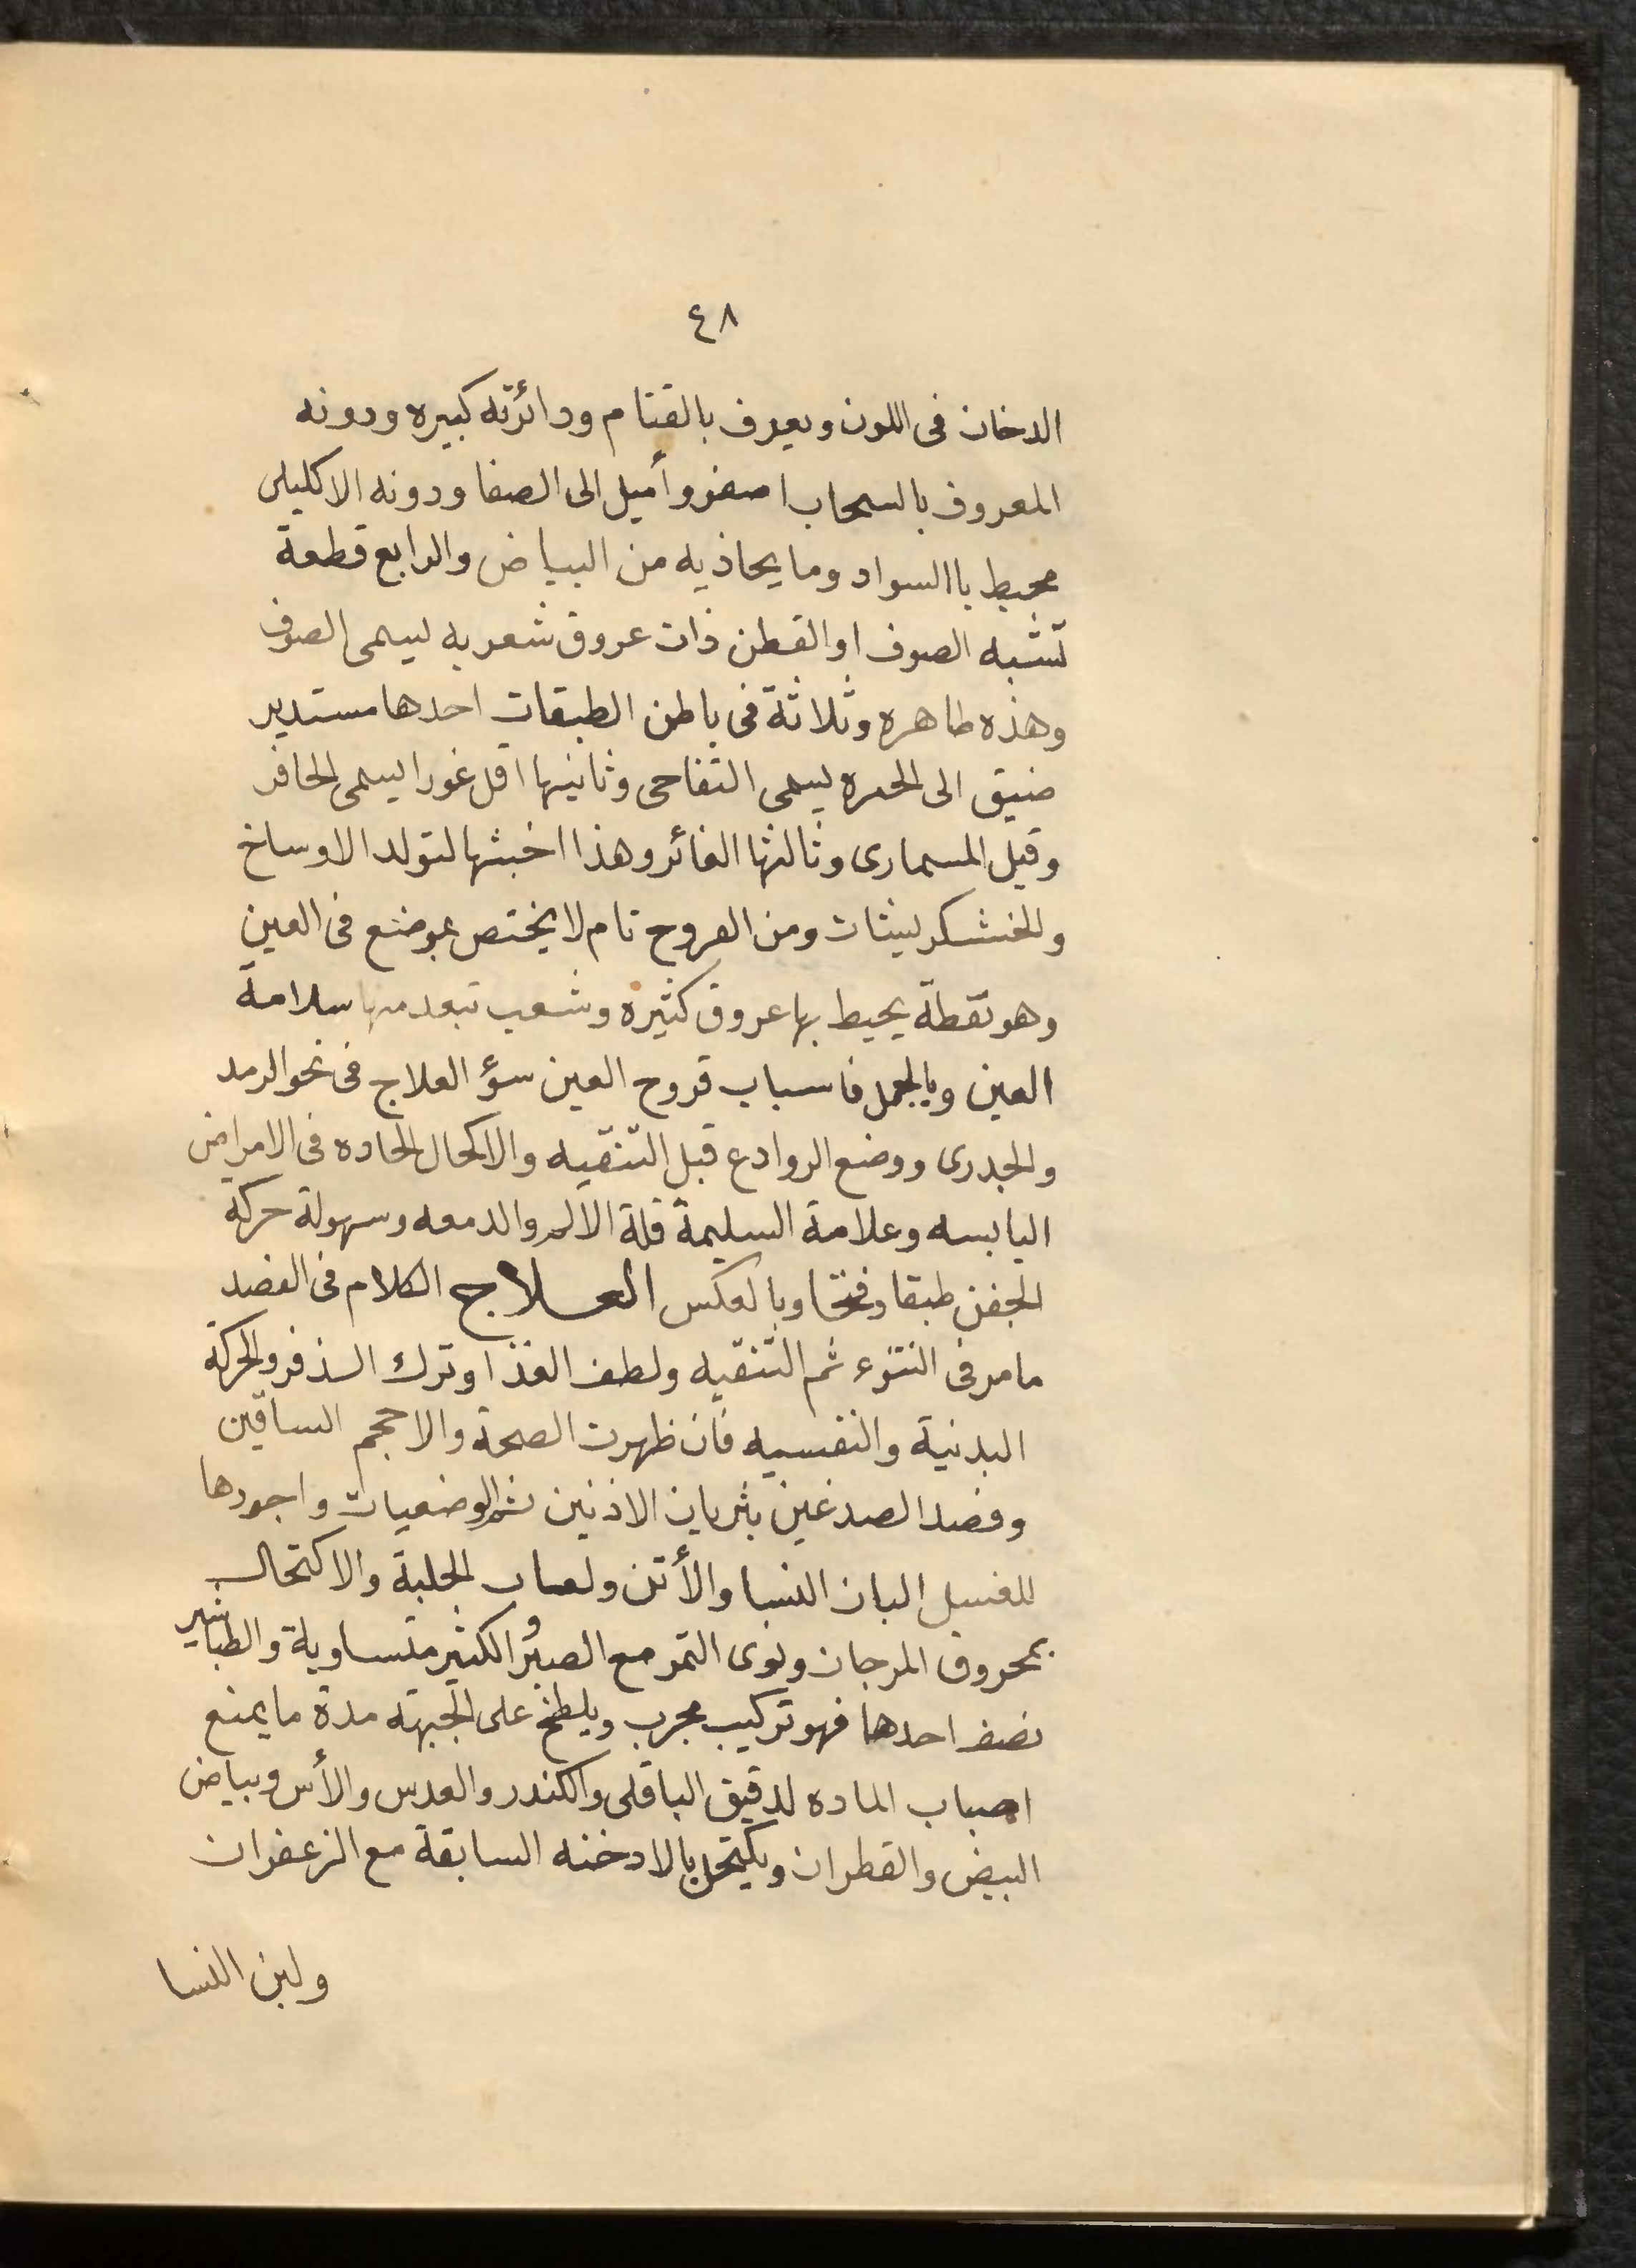 ٤٨
الدخان فى اللون ويعرف بالقتام ودائرته كبيره ودونه
المعروف بالسحاب اصغر وأميل الى الصفا ودونه الاكليلى
محيط باالسواد وما يحاذيه من البياض والرابع قطعة
تشبه الصوف او القطن ذات عروق شعريه ليسمى الصوفى
وهذه ظاهره وثلاثة فى باطن الطبقات احدها مستدير
ضيق الى الحمره يسمى التفاحى وثانيها اقل غورا يسمى الحافر
وقيل المسمارى وثالثها الغائر وهذا اخبثها لتولد الاوساخ
والخشكريشات ومن القروح تام لا يختص بموضع فى العين
وهو نقطة يحيط بها عروق كثيره وشعب تبعد منها سلامة
العين وبالجمل فاسباب قروح العين سؤ العلاج فى نحو الرمد
والجدرى ووضع الروادع قبل التنقيه والاكحال الحاده فى الامراض
اليابسه وعلامة السليمة قلة الالم والدمعه وسهولة حركة
الجفن طبقا وفتحا وبالعكس العلاج الكلام فى الفصد
مامر فى النتوء ثم التنقيه ولطف الغذا وترك الذفر والحركة
البدنية والنفسيه فان ظهرت الصحة والا حجم الساقين
وفصد الصدغين بثريان الاذنين ثم الوضعيات واجودها
للغسل البان النسا والأتن ولعاب الحلبة والاكتحال
بمحروق المرجان ونوى التمر مع الصبر والكثير متساوية والطباشير
نصف احدها فهو تركيب مجرب ويلطخ على الجبهته مدة ما يمنع
اصباب الماده لدقيق الباقلى والكندر والعدس والأس وبياض
البيض والقطران ويكتحل بالادخنه السابقة مع الزعفران
ولبن النسا